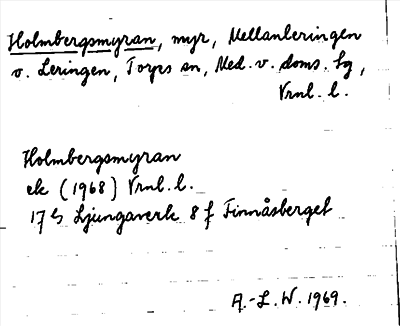 Holmbergsmyran, myr, Mellanleringen
v. Leringen, Torps sn, Med. v. doms. sg,
Vrnl. l.
Holmbergsmyran
ek (1968) Vrnl. l.
17 G Ljungaverk 8 f Finnåsberget
A.-L. W. 1969.